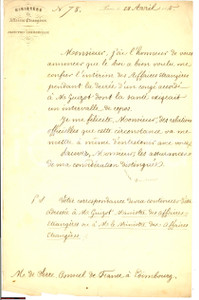 MINISTÈRE
des
Affaires Étrangères
DIRECTION COMMERCIALE
N° 78.
28 Avril
Monsieur, j'ai l'honneur de vous
annoncer que le Roi a bien voulu me
confier l'intérim des Affaires Étrangères
pendant la durée d'un congé accordé
à Mr Guizot dont la santé exigeait
un intervalle de repos.
Je me félicite, Monsieur, des relations
officielles que cette circonstance va me
mettre à même d'entretenir avec vous.
Recevez, Monsieur, les assurances
de ma considération distinguée.
P.S. Votre correspondance devra continuer d'être
adressée à Mr Guizot, Ministre des Affaires
Étrangères ou à M. le Ministre des Affaires
Étrangères.
Mr de Consul de France à